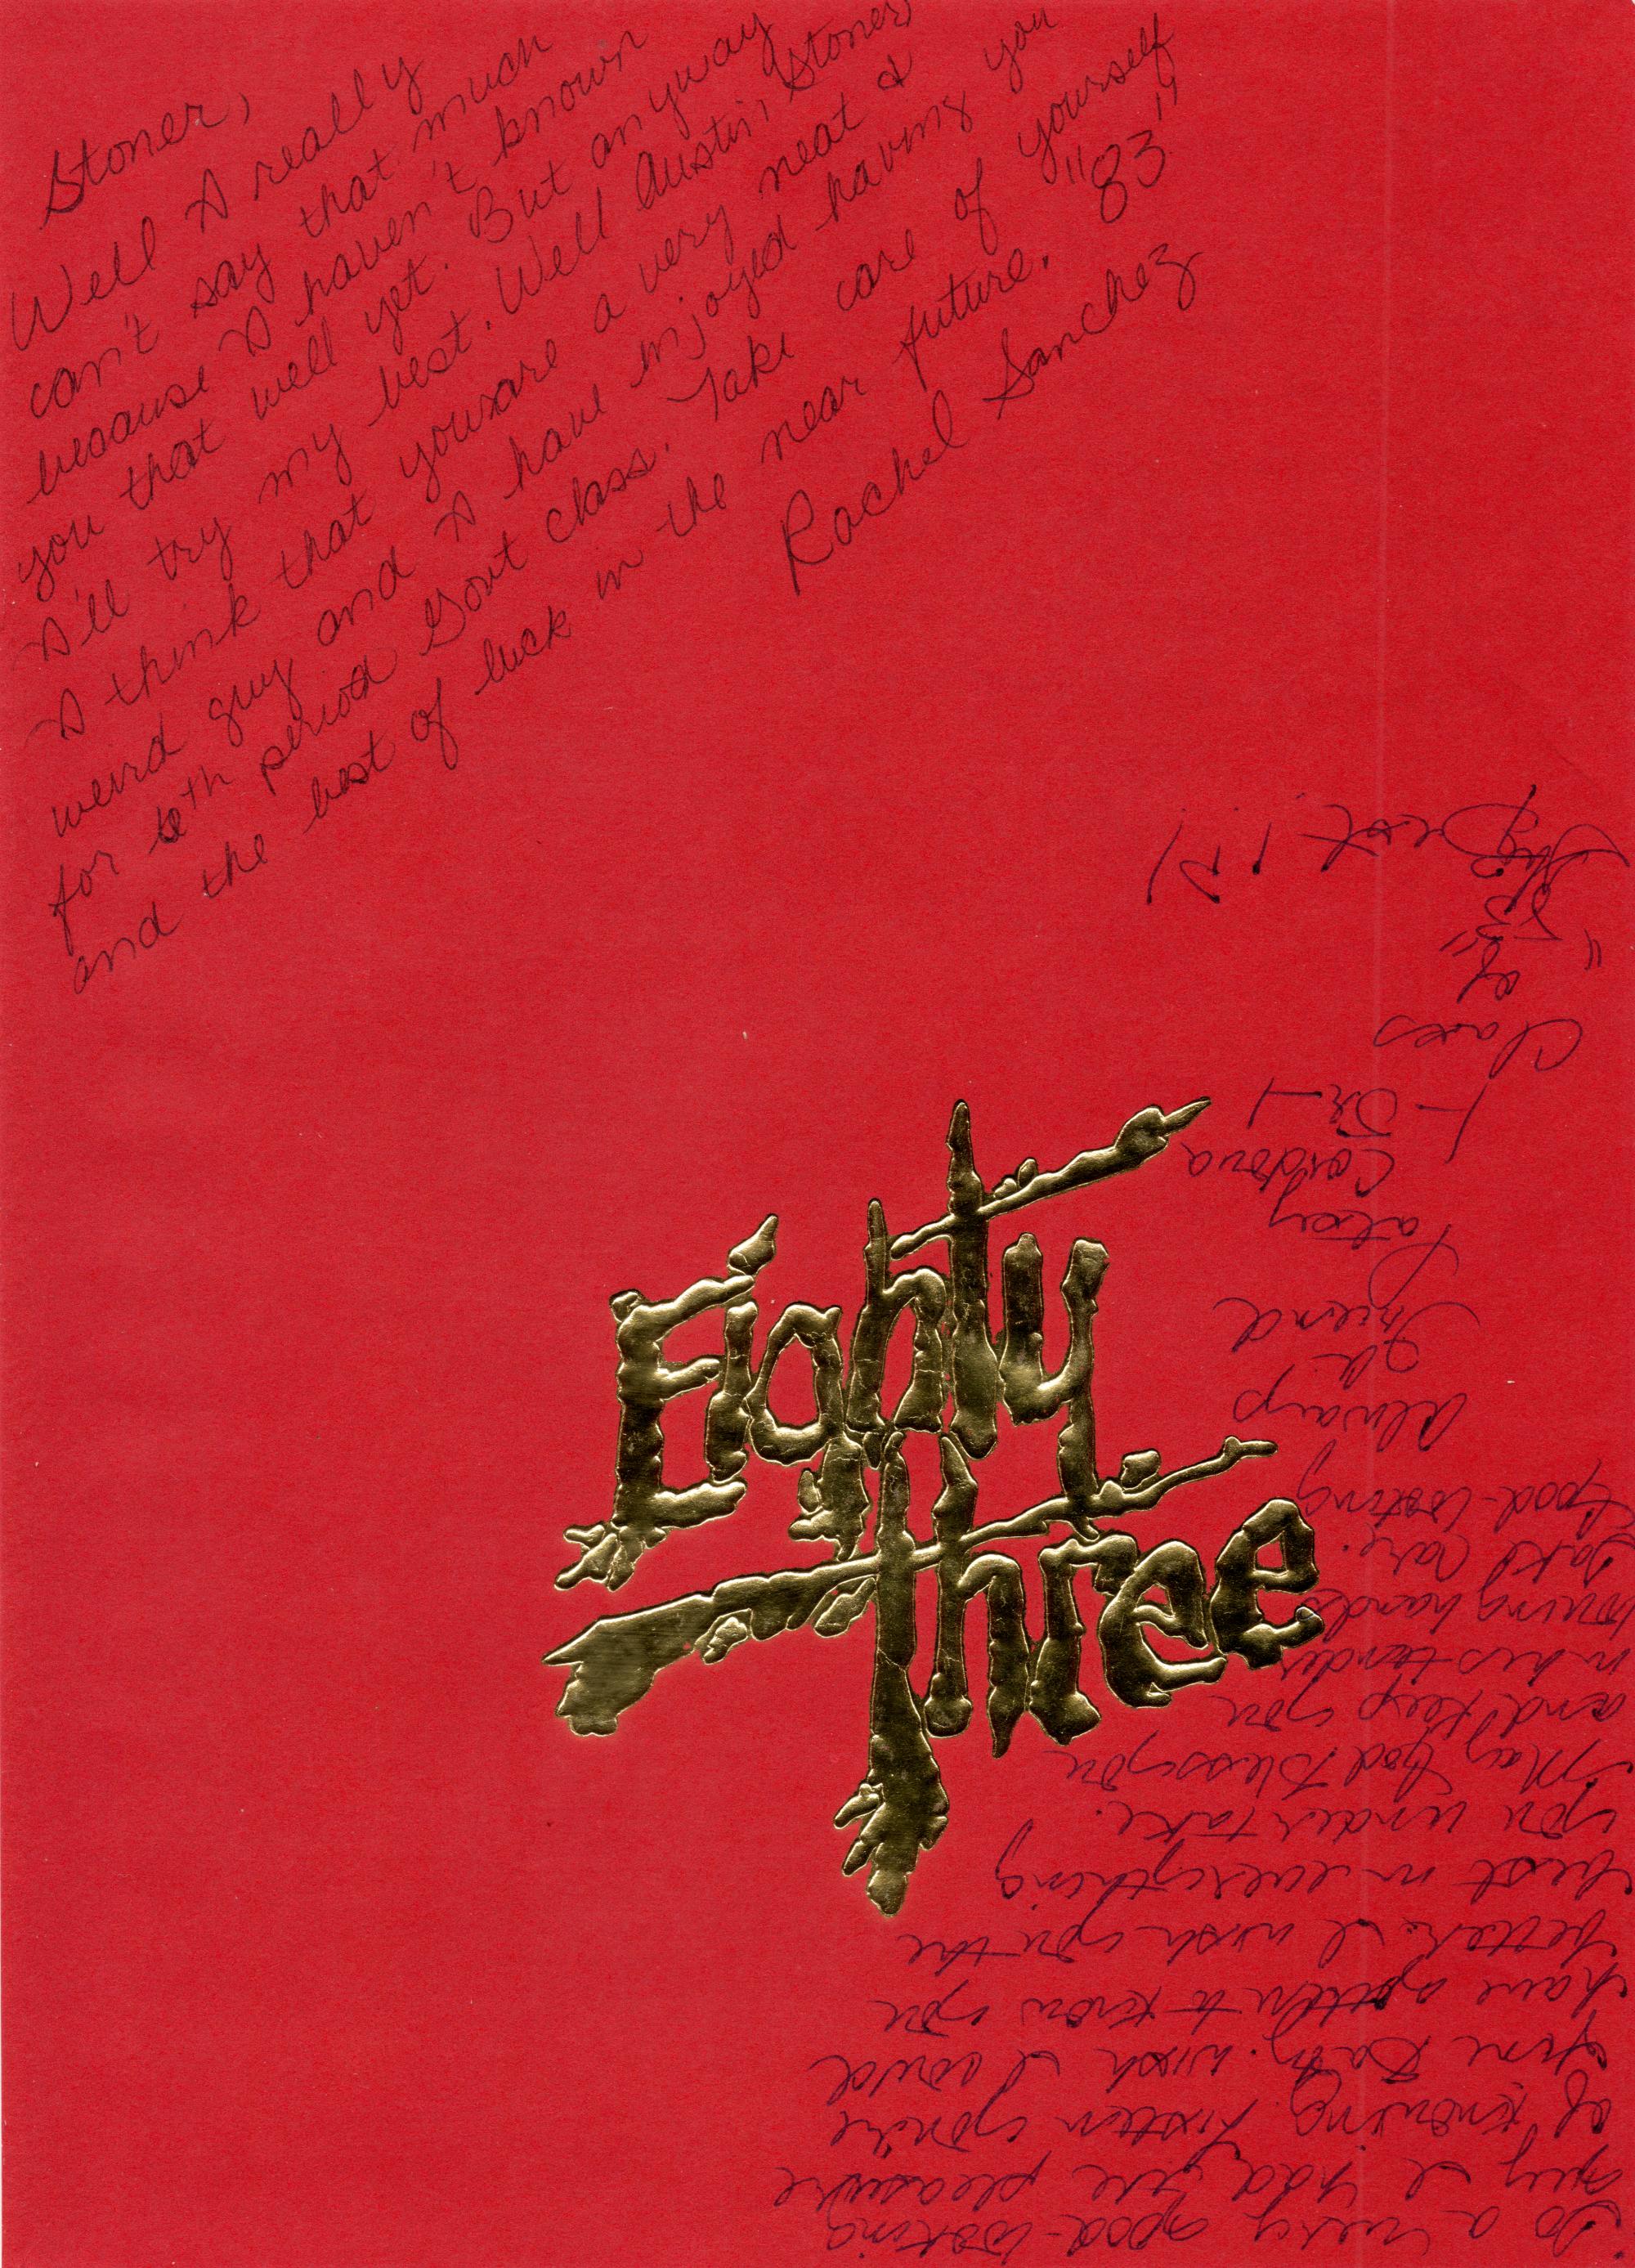 Stoner,
Well I really
can't say that much
because I haven't known
you that well yet. But anyway
I'll try my best. Well Austin, Stoner
I think that you are a very neat &
weird guy and I have injoyed having you
for 6th period Govt class. Take care of yourself
and the best of luck in the near future.
Rachel Sanchez
"83"
Eighty
three
To a very good-looking
guy I had the pleasure
of knowing. Listen you're
fine Baby. wish I could
have gotten to know you
better. I wish you the
best in everything
you undertake.
May God Bless you
and keep you
in his tender
loving hands.
Take Care.
Good-looking
Always
a
Friend
Patsy
Cordova
Class
of
"83"
The Best!